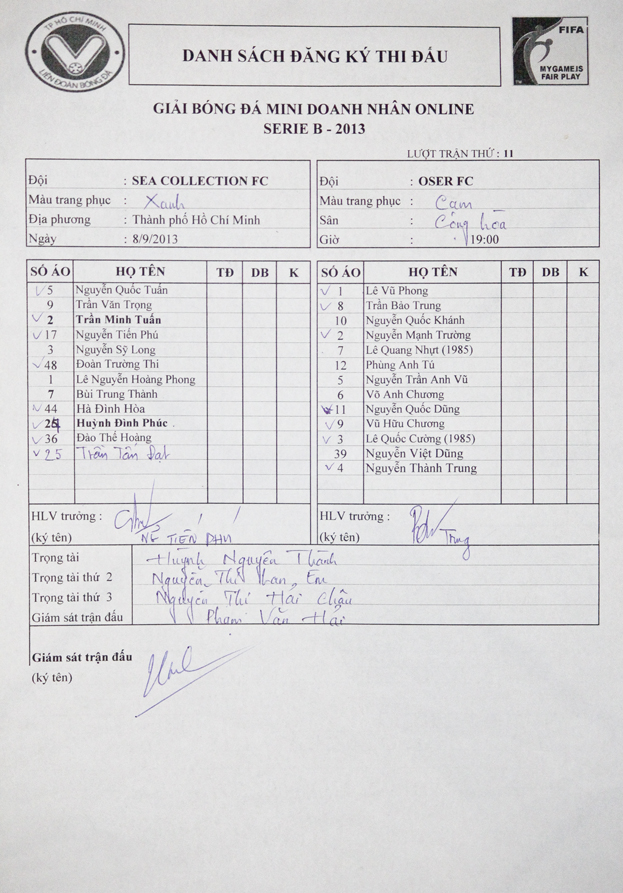 TP HỒ CHÍ MINH
LIÊN ĐOÀN BÓNG ĐÁ
DANH SÁCH ĐĂNG KÝ THI ĐẤU
FIFA
MY GAME IS
FAIR PLAY
GIẢI BÓNG ĐÁ MINI DOANH NHÂN ONLINE
SERIE B - 2013
LƯỢT TRẬN THỨ : 11
Đội : SEA COLLECTION FC
Màu trang phục : Xanh
Địa phương : Thành phố Hồ Chí Minh
Ngày : 8/9/2013
Đội : OSER FC
Màu trang phục : Cam
Sân : Cộng hòa
Giờ : 19:00
SỐ ÁO HỌ TÊN TĐ DB K
5 Nguyễn Quốc Tuấn
9 Trần Văn Trọng
2 Trần Minh Tuấn
17 Nguyễn Tiến Phú
3 Nguyễn Sỹ Long
48 Đoàn Trường Thi
1 Lê Nguyễn Hoàng Phong
7 Bùi Trung Thành
44 Hà Đình Hòa
Huỳnh Đình Phúc
36 Đào Thế Hoàng
25 Trần Tấn Đạt
SỐ ÁO HỌ TÊN TĐ DB K
1 Lê Vũ Phong
8 Trần Bảo Trung
10 Nguyễn Quốc Khánh
2 Nguyễn Mạnh Trường
7 Lê Quang Nhựt (1985)
12 Phùng Anh Tú
5 Nguyễn Trần Anh Vũ
6 Võ Anh Chương
11 Nguyễn Quốc Dũng
9 Vũ Hữu Chương
3 Lê Quốc Cường (1985)
39 Nguyễn Việt Dũng
4 Nguyễn Thành Trung
HLV trưởng :
(ký tên) NG TIẾN PHÚ
HLV trưởng :
(ký tên) Trung
Trọng tài Huỳnh Nguyên Thành
Trọng tài thứ 2 Nguyễn Thị Lan Em
Trọng tài thứ 3 Nguyễn Thị Hải Châu
Giám sát trận đấu Phạm Văn Hải
Giám sát trận đấu
(ký tên)